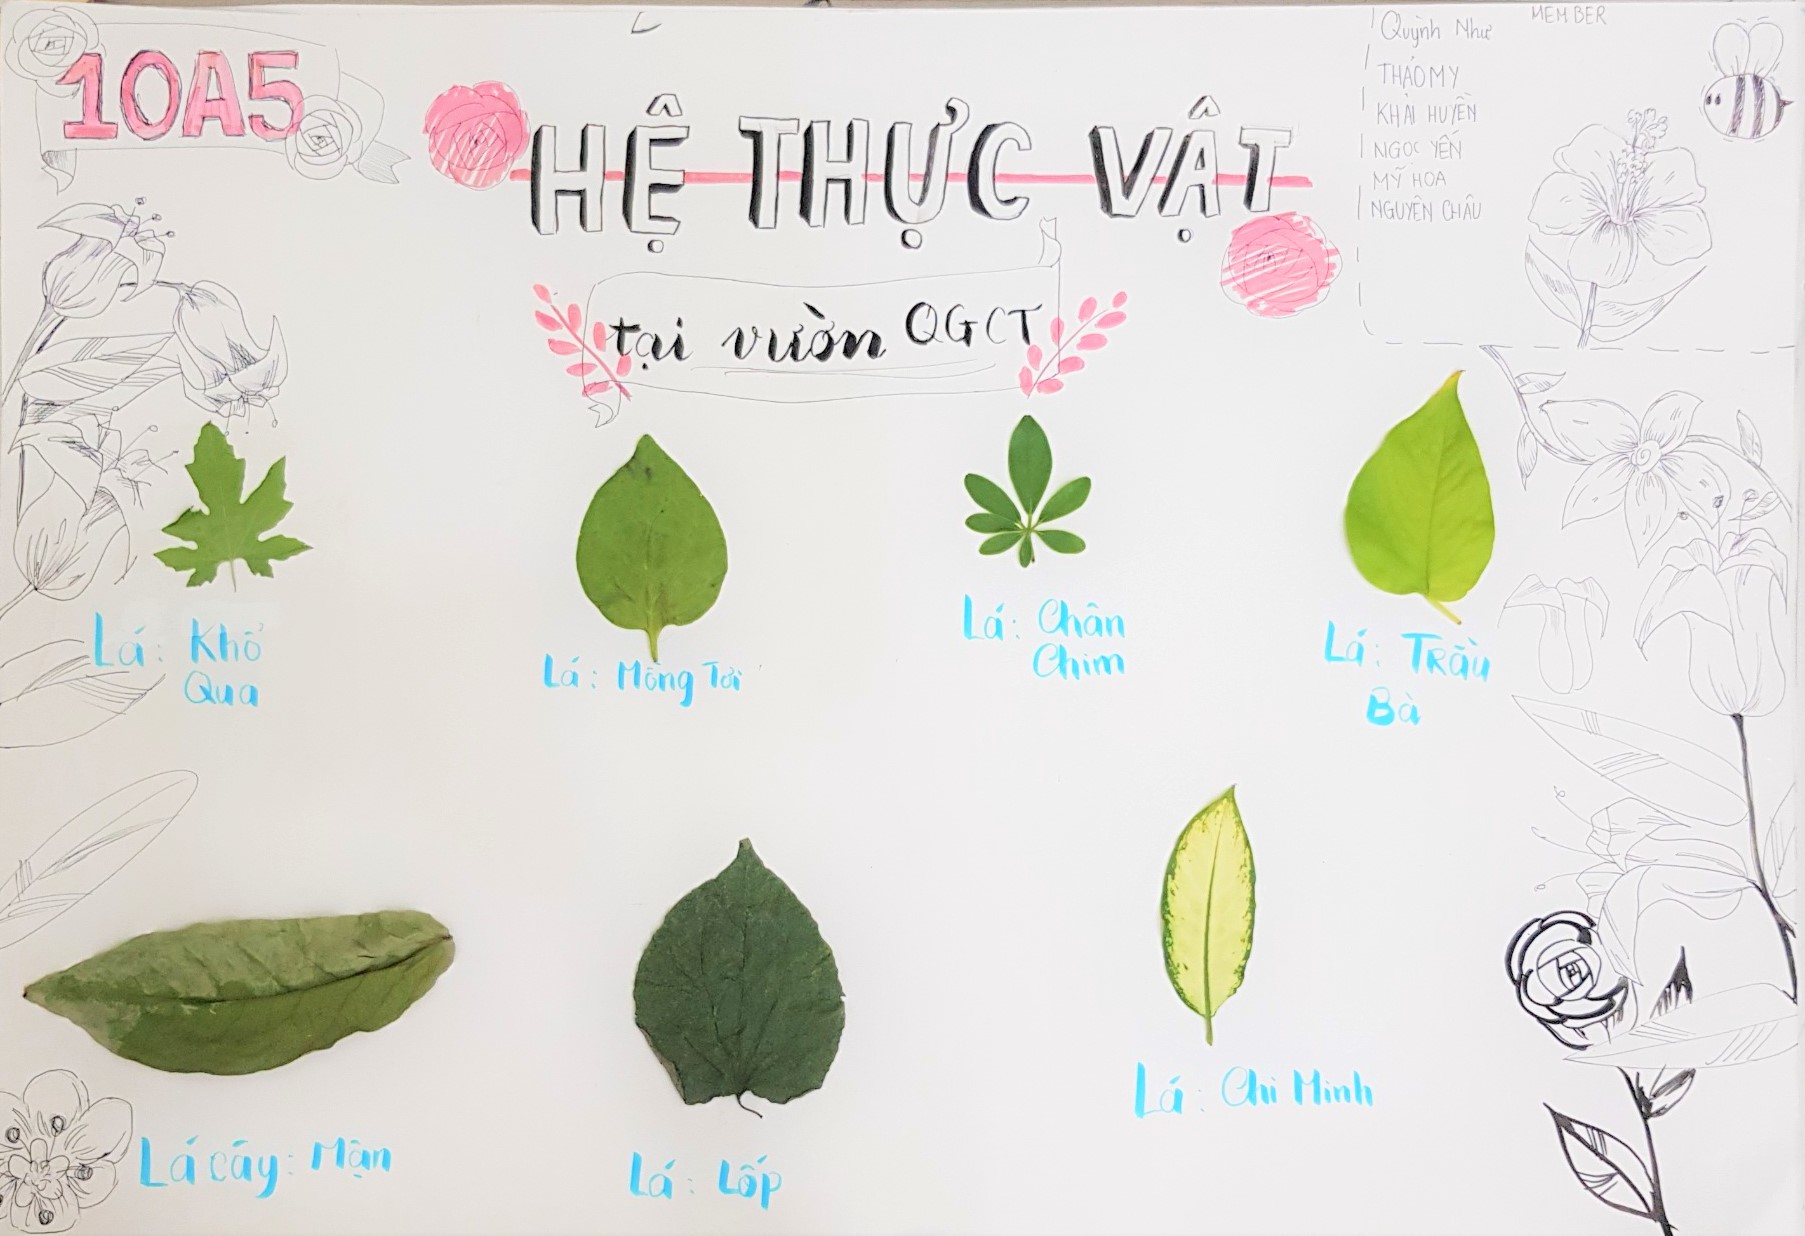 10A5
HỆ THỰC VẬT
tại vườn QGCT
MEMBER
Quỳnh Như
THẢO MY
KHẢI HUYỀN
NGỌC YẾN
MỸ HOA
NGUYÊN CHÂU
Lá: Khổ
Qua
Lá: Mồng Tơi
Lá: Chân
Chim
Lá: Trầu
Bà
Lá cây: Mận
Lá: Lốp
Lá: Chi Minh